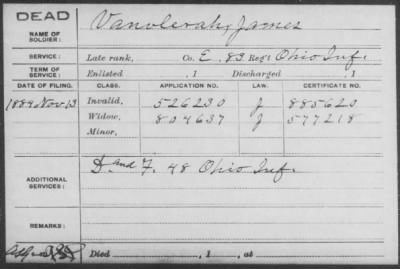 DEAD
NAME OF SOLDIER: Vanvlerah, James
SERVICE: Late rank, Co. E. 83 Reg't Ohio Inf.
TERM OF SERVICE: Enlisted , 1 Discharged , 1
DATE OF FILING. CLASS. APPLICATION NO. LAW. CERTIFICATE NO.
1884 Nov. 13 Invalid, 526230 J 885620
Widow, 804637 J 577218
Minor,
ADDITIONAL SERVICES: D and F. 48 Ohio Inf.
REMARKS:
Died , 1 , at